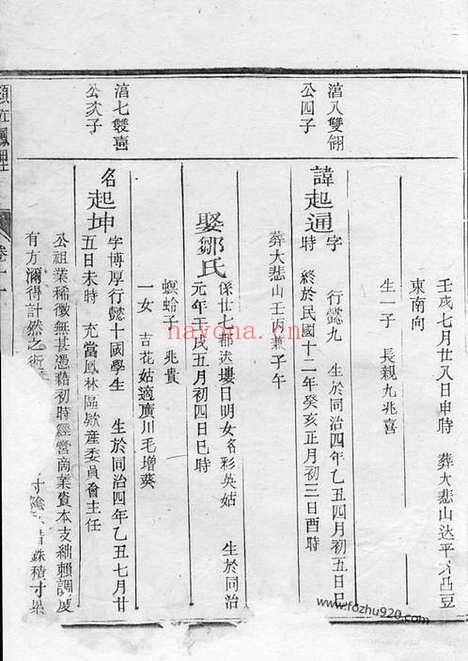 壬戌七月廿八日申時 葬大悲山达平 凸豆
東南向
生一子 長親九兆喜
淯八雙翎
公四子
諱起通
字 行懿九 生於同治四年乙丑四月初五日巳
時 終於民國十二年癸亥正月初三日酉時
葬大悲山壬丙兼子午
娶鄒氏
係廿七都 日明女名彩英姑 生於同治
元年壬戌五月初四日巳時
螟蛉子 兆貴
一女 吉花姑適廣川毛增葵
淯七雙喜
公次子
名起坤
字博厚行懿十國學生 生於同治四年乙丑七月廿
五日未時 充當鳳林區欵產委員會主任
公祖業稀微無甚憑藉初時經營商業資本支絀賴調度
有方彌得計然之術 寸陰 銖積寸累
hayona.cn
www.fozhu920.com